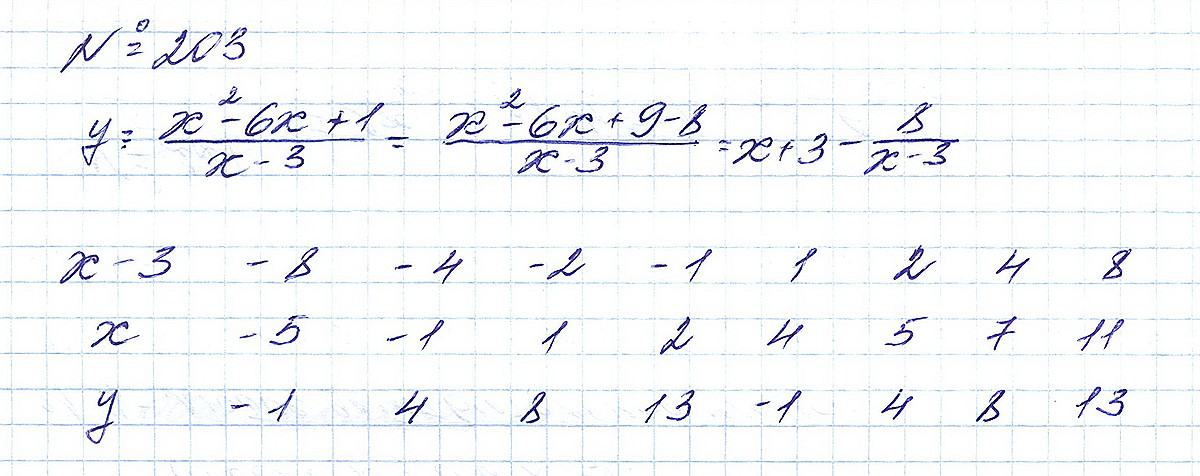 № 203
y = (x² - 6x + 1)/(x - 3) = (x² - 6x + 9 - 8)/(x - 3) = x + 3 - 8/(x - 3)
x - 3 -8 -4 -2 -1 1 2 4 8
x -5 -1 1 2 4 5 7 11
y -1 4 8 13 -1 4 8 13